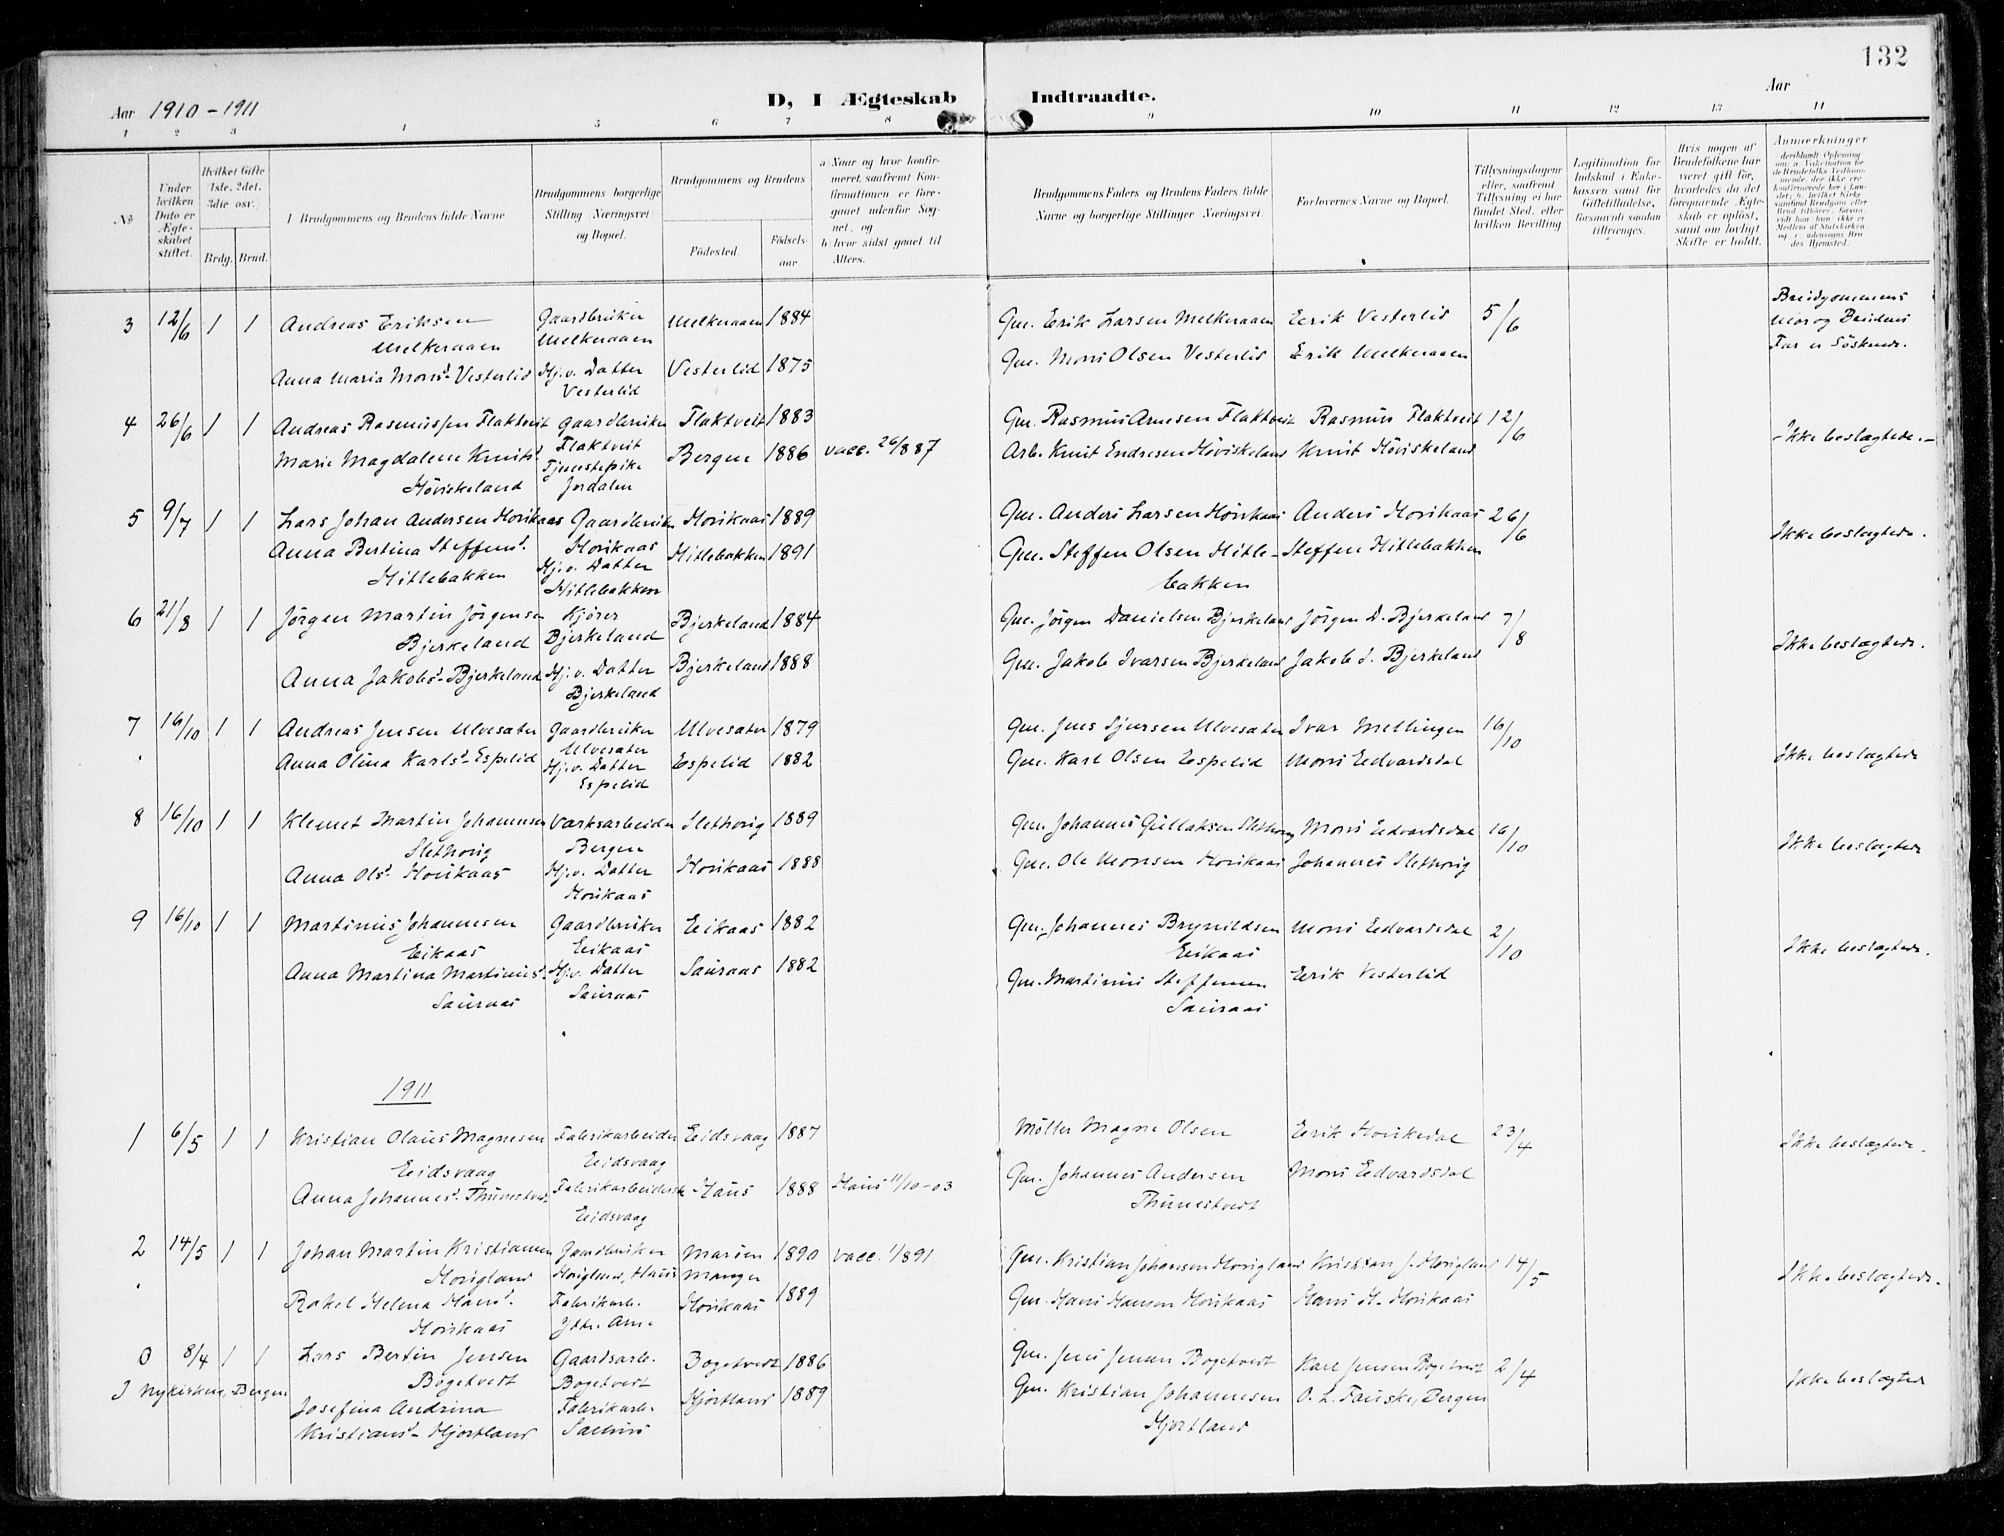 132
Aar 1910-1911
D, I Ægteskab Indtraadte.
Aar
1 2 3 4 5 6 7 8 9 10 11 12 13 14
No
Under hvilken Dato er Ægteskabet stiftet.
Hvilket Gifte 1ste, 2det, 3die osv.
Brdg. Brud.
I Brudgommens og Brudens fulde Navne
Brudgommens borgerlige Stilling (Næringsvei) og Bopæl.
Brudgommens og Brudens
Fødested.
Fødsels-aar.
a Naar og hvor konfirmeret, saafremt Konfirmationen er foregaaet udenfor Sognet, og
b hvor sidst gaaet til Alters.
Brudgommens Faders og Brudens Faders fulde Navne og borgerlige Stillinger (Næringsvei).
Forlovernes Navne og Bopæl.
Tillysningsdagene eller, saafremt Tillysning ei har fundet Sted, efter hvilken Bevilling
Legitimation for Indskud i Enkekassen samt for Giftetilladelse, forsaavidt saadan tiltrænges.
Hvis nogen af Brudefolkene har været gift før, hvorledes da det foregaaende Ægteskab er opløst, samt om lovligt Skifte er holdt.
Anmærkninger
3 12/6 1 1 Andreas Eriksen Gaardbruker Melkeraaen 1884 Gm. Erik Larsen Melkeraaen Erik Vesterlid 5/6 Brudgommens
Melkeraaen Melkeraaen Mor og Brudens
Anna Maria Monsd. Vesterlid Hj.v. Datter Vesterlid 1875 Gm. Mons Olsen Vesterlid Erik Melkeraaen Far er Söskende.
Vesterlid
4 26/6 1 1 Andreas Rasmussen Flaktveit Gaardbruker Flaktveit 1883 Gm. Rasmus Arnesen Flaktveit Rasmus Flaktveit 12/6
Flaktveit
Marie Magdalene Knutsd. Tjenestepike Bergen 1886 vacc. 26/887 Arb. Knut Endresen Höviskeland Knut Höviskeland - Ikke beslægtede. -
Höviskeland Jordalen
5 9/7 1 1 Lars Johan Andersen Horikaas Gaardbruker Horikaas 1889 Gm. Anders Larsen Horikaas Anders Horikaas 26/6
Horikaas
Anna Bertina Steffensd. Hj.v. Datter Hitlebakken 1891 Gm. Steffen Olsen Hitle- Steffen Hitlebakken Ikke beslægtede.
Hitlebakken Hitlebakken bakken
6 21/8 1 1 Jörgen Martin Jörgensen Kjörer Bjerkeland 1884 Gm. Jörgen Danielsen Bjerkeland Jörgen D. Bjerkeland 7/8
Bjerkeland Bjerkeland
Anna Jakobsd. Bjerkeland Hj.v. Datter Bjerkeland 1888 Gm. Jakob Ivarsen Bjerkeland Jakob I. Bjerkeland Ikke beslægtede.
Bjerkeland
7 16/10 1 1 Andreas Jensen Ulvesæter Gaardbruker Ulvesæter 1879 Gm. Jens Sjursen Ulvesæter Ivar Mellingen 16/10
Ulvesæter
Anna Olina Karlsd. Espelid Hj.v. Datter Espelid 1882 Gm. Karl Olsen Espelid Mons Edvardsdal Ikke beslægtede
Espelid
8 16/10 1 1 Klemet Martin Johannesen Værksarbeider Slethorig 1889 Gm. Johannes Gullaksen Slethorig Mons Edvardsdal 16/10
Slethorig Bergen
Anna Olsd. Horikaas Hj.v. Datter Horikaas 1888 Gm. Ole Monsen Horikaas Johannes Slethorig Ikke beslægtede
Horikaas
9 16/10 1 1 Martinus Johannesen Gaardbruker Eikaas 1882 Gm. Johannes Brynildsen Mons Edvardsdal 2/10
Eikaas Eikaas Eikaas
Anna Martina Martinusd. Hj.v. Datter Sauraas 1882 Gm. Martinus Steffensen Erik Vesterlid Ikke beslægtede.
Sauraas Sauraas Sauraas
1911
1 6/5 1 1 Kristian Olaus Magnesen Fabrikarbeider Eidsvaag 1887 Möller Magne Olsen Erik Horikedal 23/4
Eidsvaag Eidsvaag
Anna Johannesd. Thunestvedt Fabrikarbeiderske Haus 1888 Haus 11/10-03 Gm. Johannes Andersen Mons Edvardsdal Ikke beslægtede.
Eidsvaag Thunestvedt
2 14/5 1 1 Johan Martin Kristiansen Gaardbruker Marøen 1890 vacc. 1/891 Gm. Kristian Johansen Horigland Kristian J. Horigland 14/5
Horigland Horigland, Haus Manger
Rakel Helena Hansd. Fabrikarb. Horikaas 1889 Gm. Hans Hansen Horikaas Hans H. Horikaas Ikke beslægtede.
Horikaas Ytre Arne
0 8/4 1 1 Lars Bertin Jensen Gaardsarb. Bogetvedt 1886 Gm. Jens Jensen Bogetvedt Karl Jensen Bogetvedt 2/4
Bogetvedt Bogetvedt
I Nykirken, Bergen Josefina Andrina Fabrikarb. Hjortland 1889 Gm. Kristian Johannesen O. L. Fauske, Bergen Ikke beslægtede
Kristiansd. Hjortland Salhus Hjortland